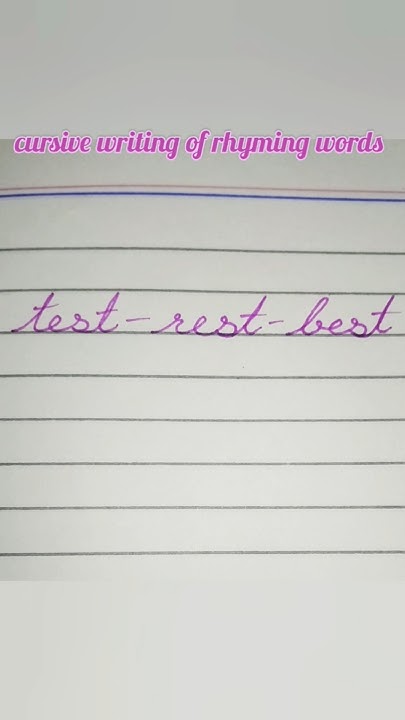 cursive writing of rhyming words
test-rest-best